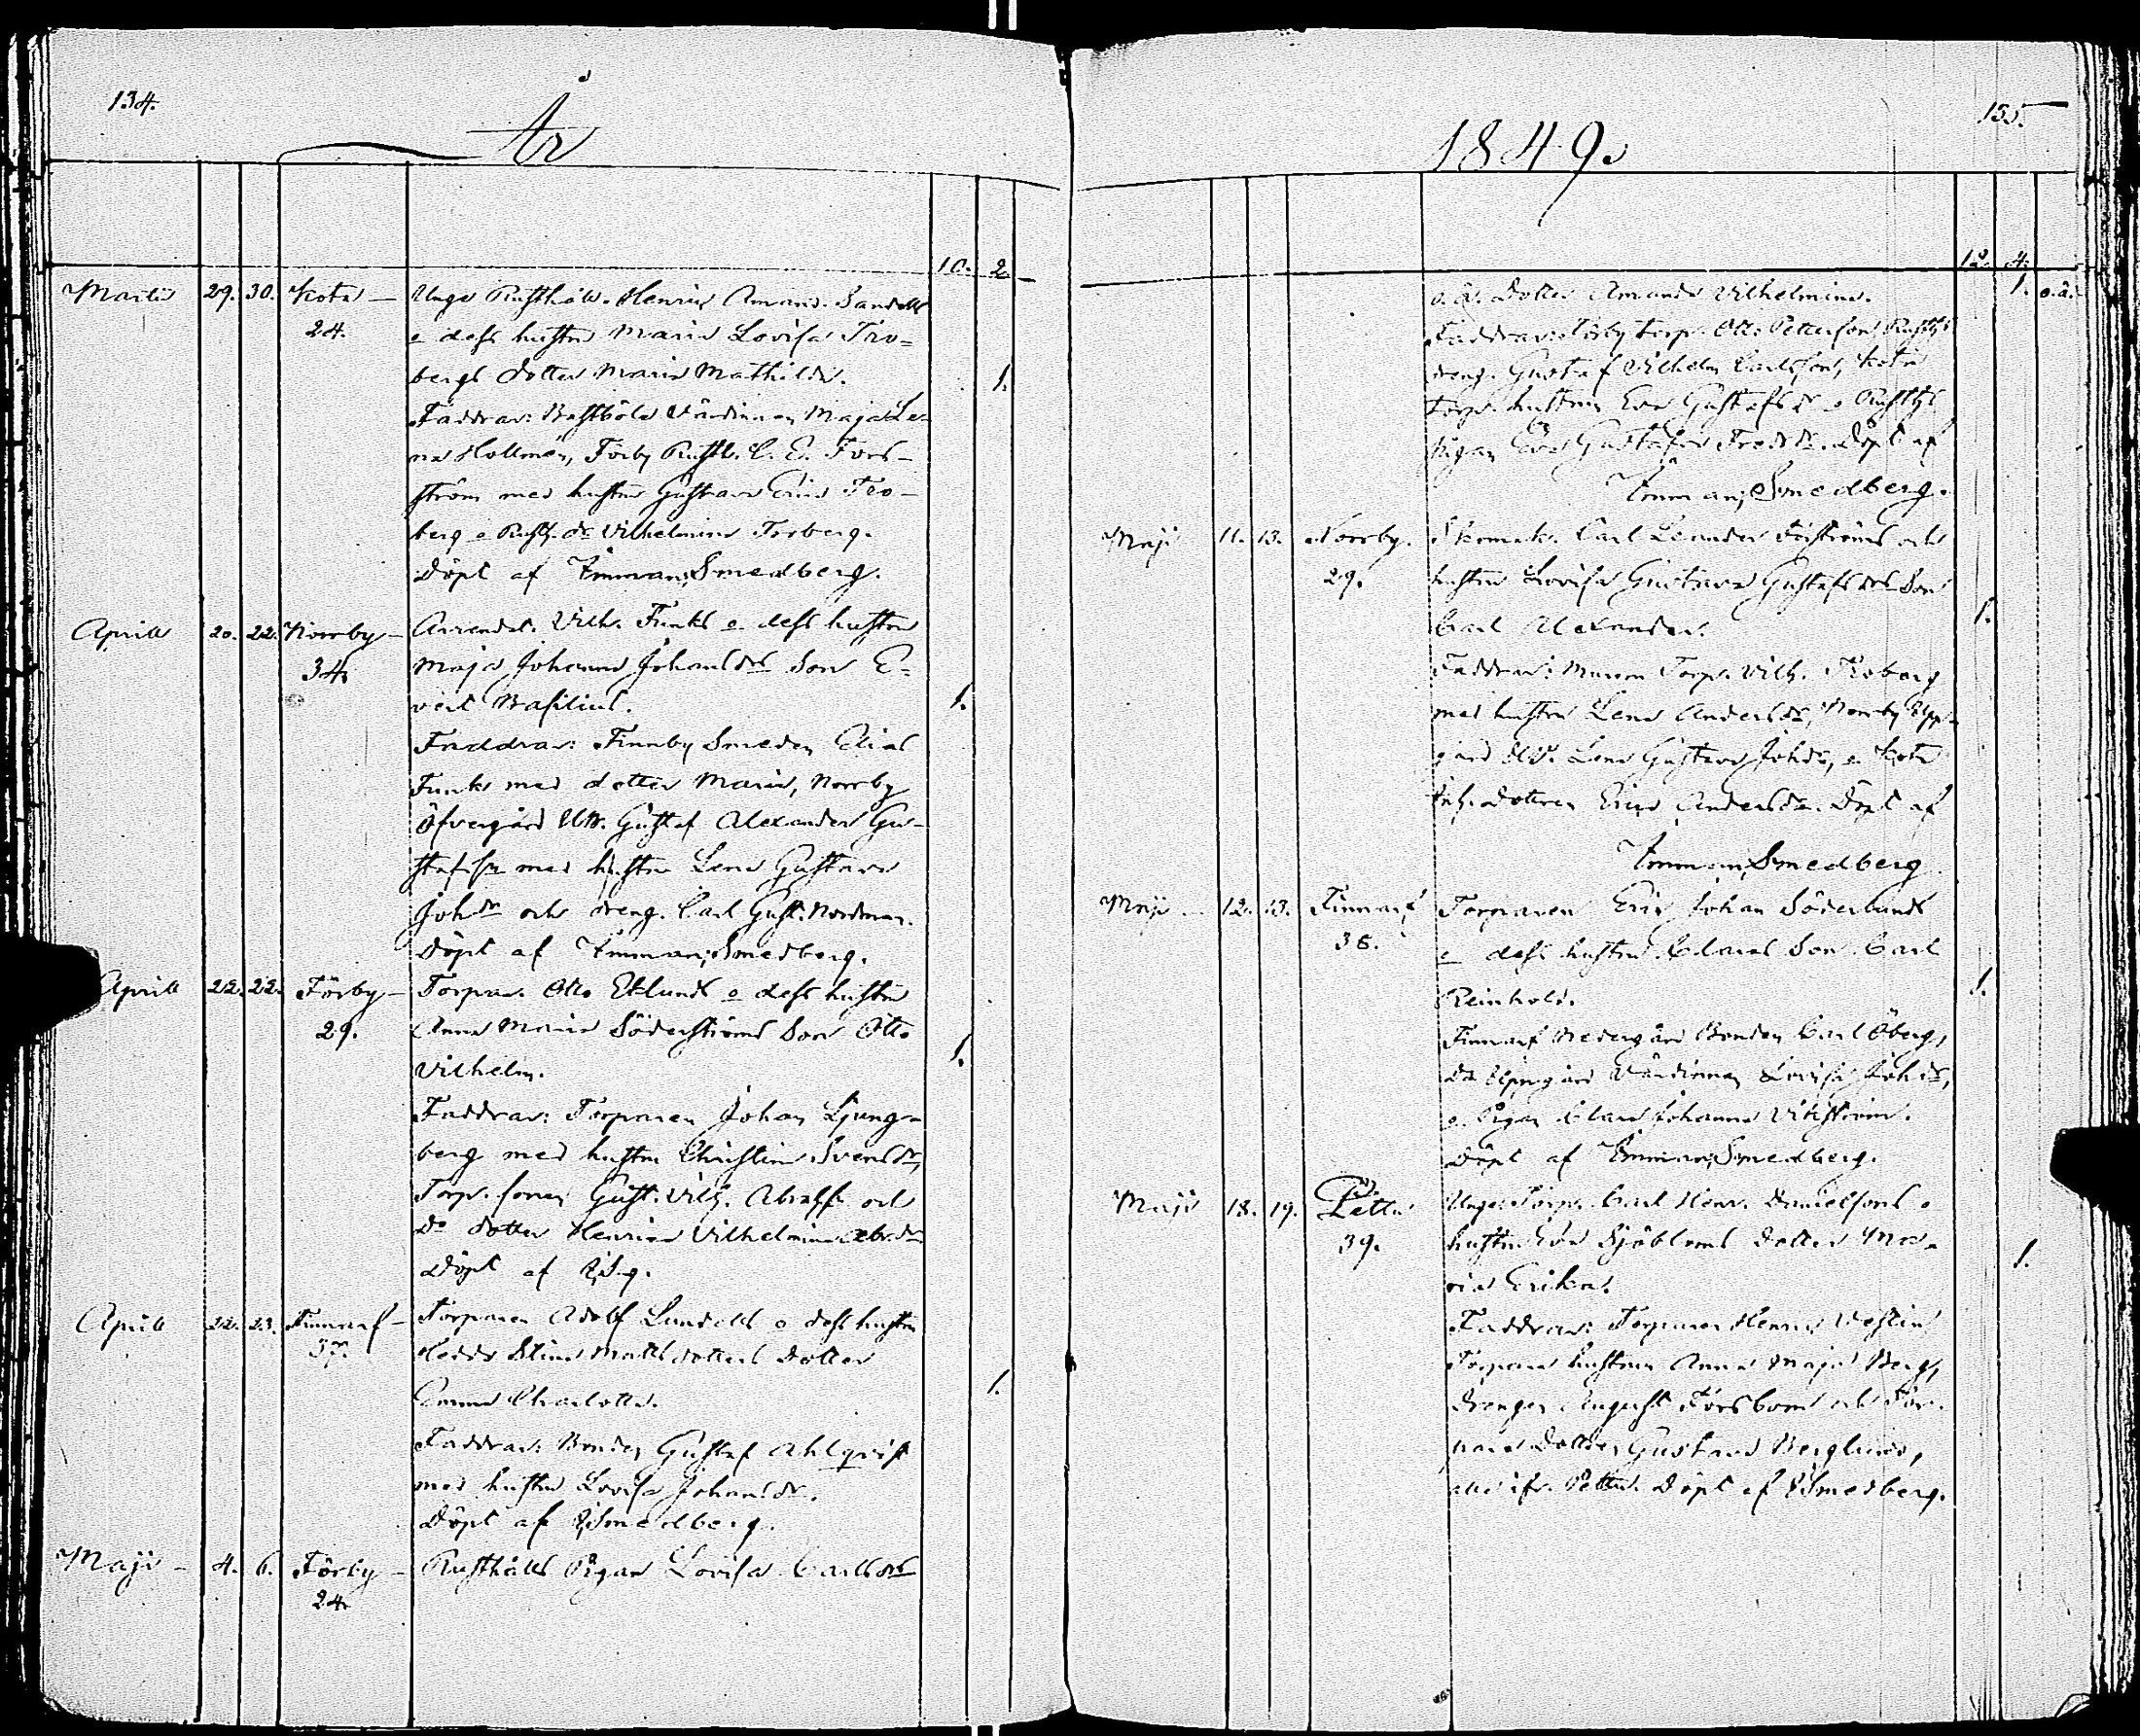 134.
År
10. 2.
Martii 29. 30. Kota — Unge Rusthåll. Henric Amand. Sandells
24. o dess hustru Maria Lovisa Fro-
bergs dotter Maria Mathilda. 1.
Faddrar: Bastböle Värdinnan Maja Le-
na Hollmén, Förby Rusth. C. E. Fors-
ström med hustru Gustava Fro-
berg o Rusth. dr Vilhelmina Forberg.
Döpt af Imman; Smedberg.
Aprill 20. 22. Norrby — Arrendat. Vilh. Funks o dess hustru
34. Maja Johanna Johansdrs Son E-
vert Basilius. 1.
Faddrar: Finnby Smeden Elias
Funk med dotter Maria, Norrby
Öfvergård Gustaf Alexander Gu-
stafss. med hustru Lena Gustava
Johdr och dreng. Carl Gust. Nordman.
Döpt af Imman; Smedberg.
Aprill 22. 22. Förby — Torpar. Otto Eklunds o dess hustru
29. Anna Maria Söderströms Son Otto
Vilhelm. 1.
Faddrar: Torparen Johan Ljung-
berg med hustru Christina Svensdr,
Torp. sonen Gust. Vilh. och
Do dotter Henrica Vilhelmina Abr.dr
Döpt af
Aprill 22. 23. Finnarf — Torparen Adolf Lundells o dess hustru
37. Hedda Stina Mattsdotters Dotter
Emma Charlotta. 1.
Faddrar: Bonden Gustaf Ahlqvist
med hustru Lovisa Johansdr.
Döpt af Smedberg.
Maji — 4. 6. Förby — Rusthålls Pigan Lovisa Carlsdrs
24.
135.
1849.
12. 4.
o. ä. Dotter Amanda Vilhelmina. 1. o.ä.
Faddrar: Förby Torp. Otto Petterson, Rusth.
dreng. Gustaf Vilhelm Carlsson, Kota
Torp. hustrun Eva Gustafsdr o Rusth.
pigan Eva Gustafva Fredr.dr. Döpt af
Imman; Smedberg.
Maji 11. 13. Norrby. Carl Leander och
29. hustru Lovisa Gustava Gustafsdrs Son
Carl Alexander. 1.
Faddrar: Torp. Vilh. Froberg
med hustru Lena Andersdr, Norrby Upp-
gård Lena Gustava Johdr, o Kota
dottren Erica Andersdr. Döpt af
Imman; Smedberg.
Maji — 12. 13. Finnarf Torparen Eric Johan Söderlunds
36. o dess hustru Claras Son Carl
Reinhold. 1.
Finnarf Nedergård Bonden Carl Öberg,
Do Uppgård Värdinnan Lovisa Johdr,
o Pigan Clara Johanna Vikström.
Döpt af Imman; Smedberg.
Maji 18. 19. Pettu Unge Torp. Carl Henr. Danielsons o
39. hustru Eva Sjöbloms dotter Ma-
ria Erika. 1.
Faddrar: Torparen Henric Westin
Torpare hustrun Anna Maja Berg,
Drengen August Forsbom och Tor-
pare Dottren Gustava Berglund,
alle ifr. Pettu. Döpt af Smedberg.